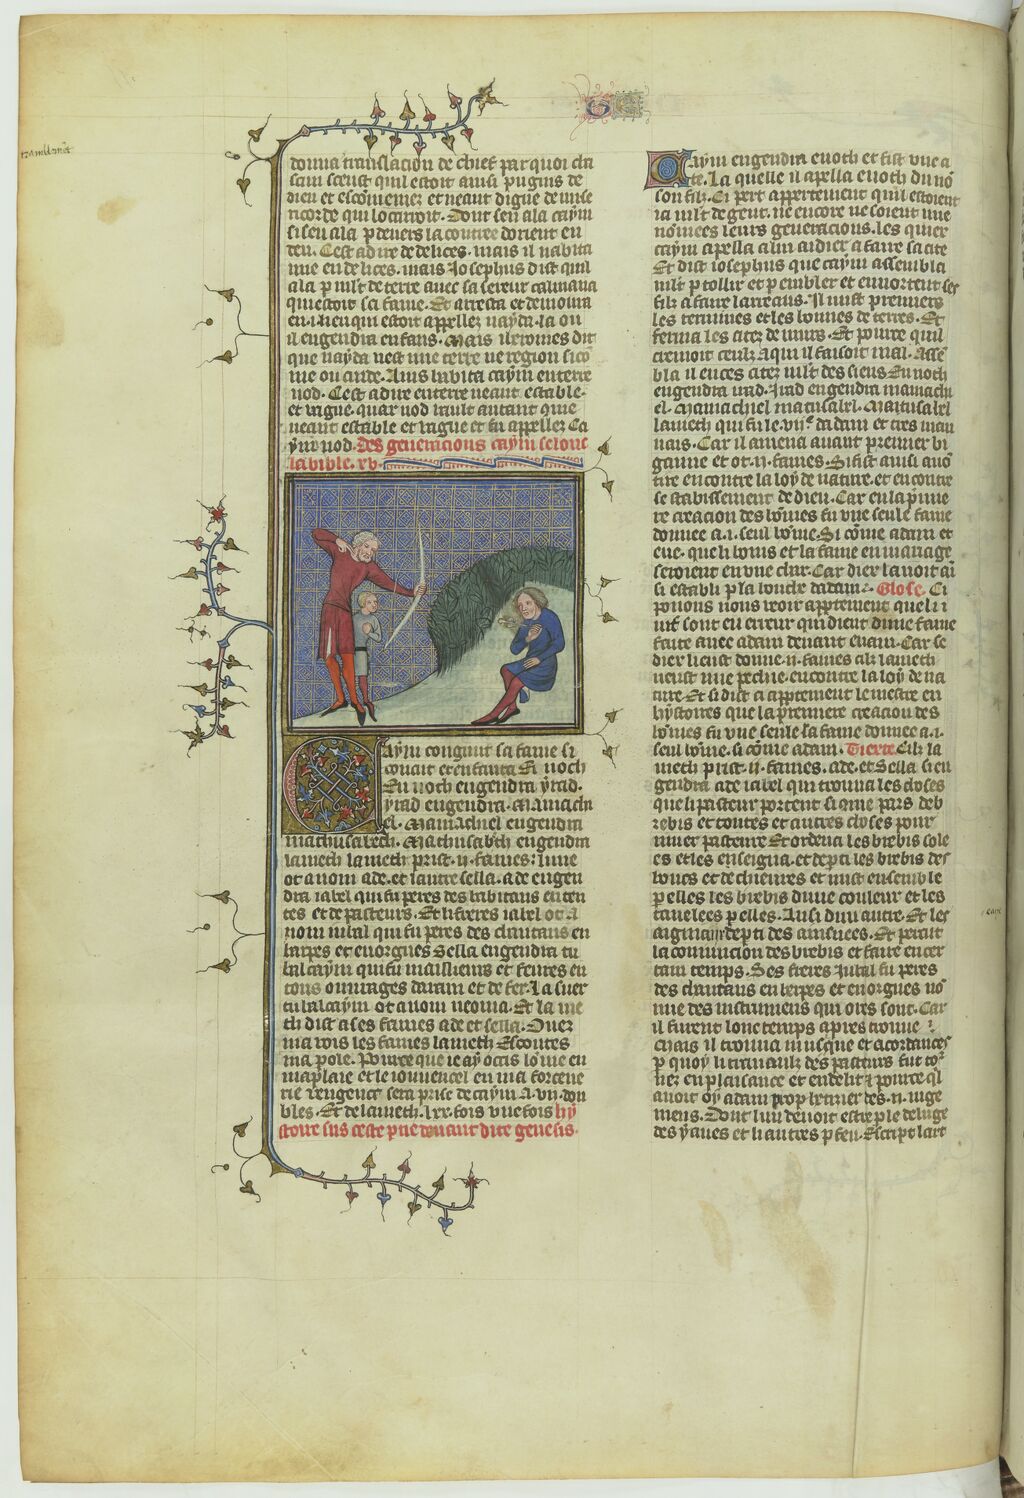 donna translacion de chief par quoi chascuns
sceust quil estoit ainsi pugnis de
dieu et escōmeniez et neant digne de mise
ricorde qui locirroit. Dont sen ala caym
si sen ala p deuers la contree dorient en
den. Cest a dire de delices. mais il nabita
mie en delices. mais Josephus dist quil
ala p mlt de terre auec sa sereur calmana
qui estoit sa fame. Et arresta et demoura
en .i. lieu qui estoit appellez nayda. la ou
il engendra enfans. Mais iheromes dit
que nayda nest mie terre ne region sicō
me on cuide. Ains habita caym en terre
nod. Cest a dire en terre neant estable.
et vague. quar nod vault autant que
neant estable et vague et fu appellez Ca
ym nod. des generacions caym selonc
la bible. xv.
Caym congnut sa fame si
concut et enfanta Enoch
Enoch engendra yrad.
yrad engendra. Mamachi
el. Mamachiel engendra
mathusalech. Mathusaleh engendra
lamech lamech prist .ii. fames: lune
ot a nom ade. et lautre sella. ade engen
dra iabel qui fu peres des habitans en ten
tes et de pasteurs. Et li freres iabel ot a
nom iubal qui fu peres des chantans en
harpes et en orgues Sella engendra tu
balcaym qui fu maislierres et feures en
tous ouurages darain et de fer. La suer
tubalcaym ot a nom neoma. Et la me
ch dist a ses fames ade et sella. Ouez
ma vois les fames lamech Escoutes
ma pole. Pource que ie ay occis lome en
ma plaie et le iouuencel en ma forcene
rie vengence sera prise de caym a .vii. dou
bles. Et de lamech .lxx. fois vne fois hy
stoire sus ceste ptie deuant dite genesis.
Caym engendra enoch et fist vne ci
te. La quelle il apella enoch du nō
son filz. Ci pert appertement quil estoient
ia mlt de gent. ne encore ne soient mie
nōmees leurs generacions. les quiex
caym apella a lui aidier a faire sa cite
Et dist iosephus que caym assembla
mlt p tollir et p embler et enuortent ses
filz a faire larrecins. Il mist premiers
les termines et les bonnes de terres. Et
ferma les citez de murs. Et pource quil
cremoit ceulz a qui il faisoit mal. Assē
bla il en ces citez mlt des siens Enoch
engendra yrad. Irad engendra mamachi
el. Mamachiel matusalel. Matusalel
lamech qui fu le .viie dadam et tres mau
uais. Car il amena auant premier bi
gamie et ot .ii. fames. Si fist ainsi auō
tire encontre la loy de nature. et encontre
le stabissement de dieu. Car en la pmie
re creacion des hōmes fu vne seule fame
donnee a .i. seul hōme. Si cōme adam et
eue. que li homs et la fame en mariage
seroient en vne char. Car diex lauoit ai
si establi p la bouche dadam. Glose. Ci
pouons nous veoir appertement que li i
uif sont en erreur qui dient dune fame
faite auec adam deuant euain. Car se
diex lieust donne .ii. fames filz lamech
neust mie pechie encontre la loy de na
ture. Et si dist ci appertement le mestre en
hystoires que la premiere creacion des
hōmes fu vne seule fame donnee a .i.
seul hōme. si cōme adam. Tierte. Cilz la
mech prist .ii. fames. ade. et Sella si en
gendra ade iabel qui trouua les choses
que li pasteur portent si cōme pars deb
rebis et toutes et autres choses pour
muer pasture Et ordena les brebis sole
es et les enseigna. et depti les brebis des
boucs et de chieures et mist ensemble
p elles les brebis dune couleur et les
tauelees p elles. Ausi dun autre. Et les
aigniaux depti des ainsnees. Et
la commicion des brebis et faire en cer
tain temps. Ses freres Jubal fu peres
des chantans en herpes et en orgues nō
mie des instrumens qui ores sont. Car
il furent lonc temps apres trouue
mais il trouua musique et acordances
p quoy li trauaulz des pasteurs fut tor
nez en plaisance et en delit et pource ql
auoit oy adam prophetizier des .ii. iuge
mens. Dont lun deuoit estre p le deluge
des yaues et li autres p feu. Escript lart